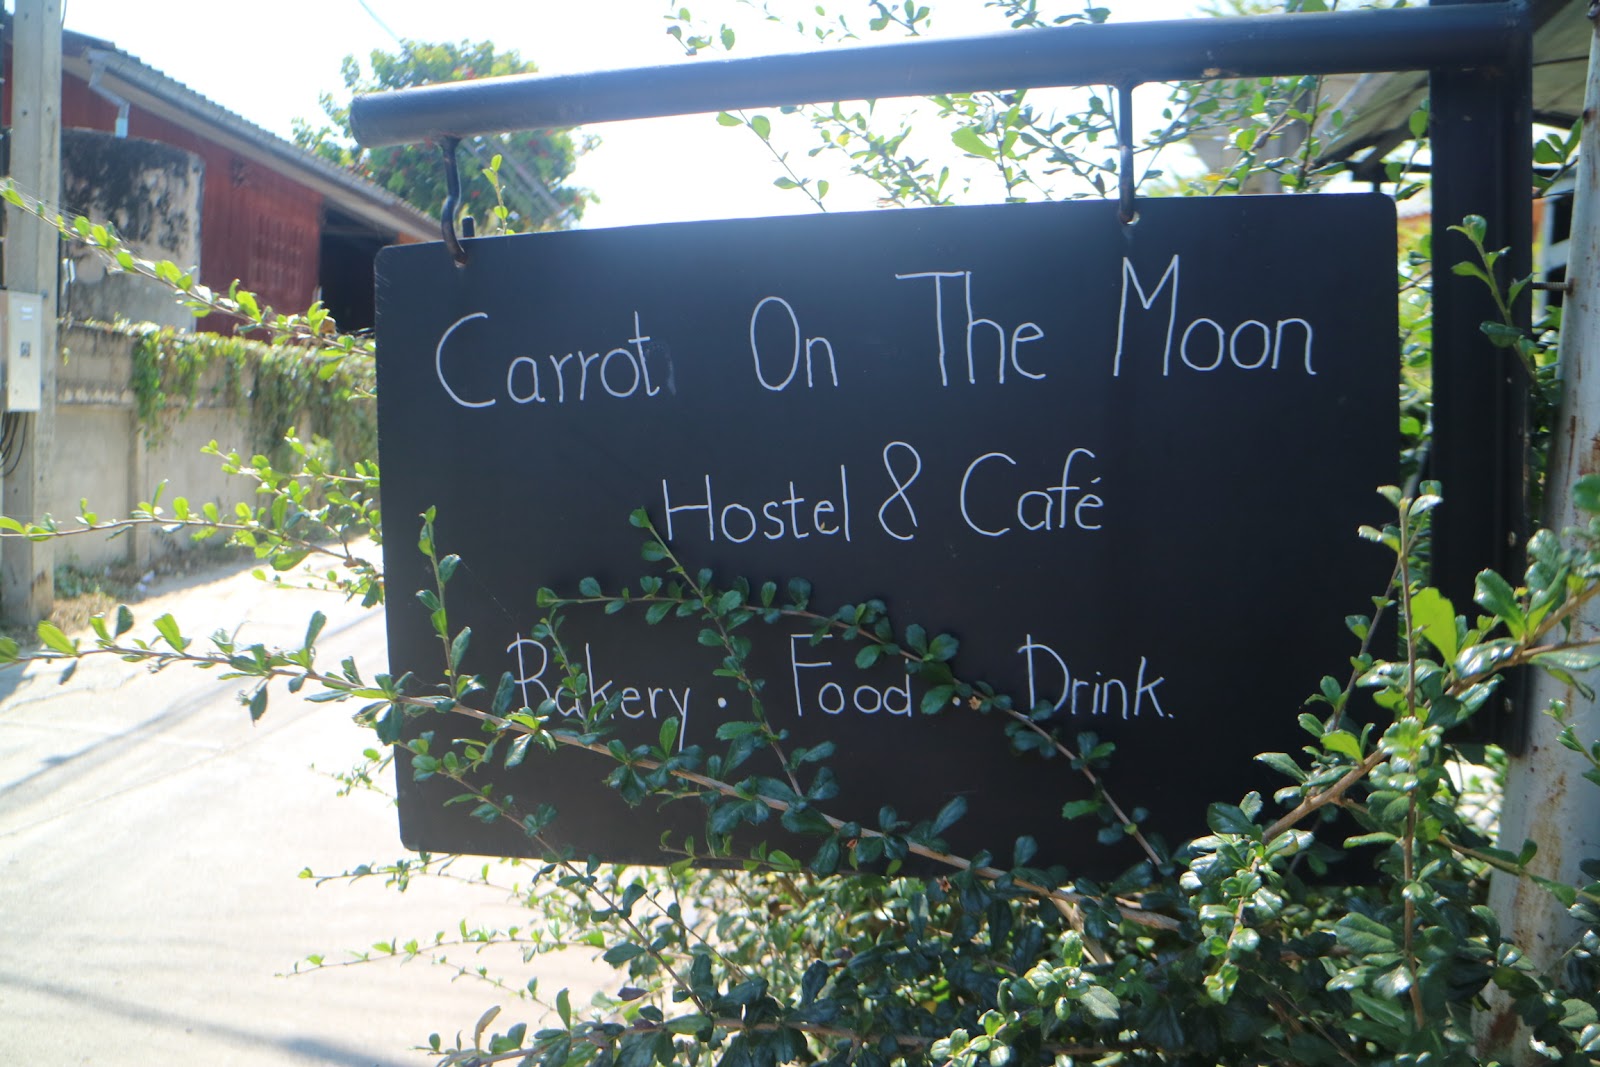 Carrot On The Moon
Hostel & Café
Bakery . Food . Drink.